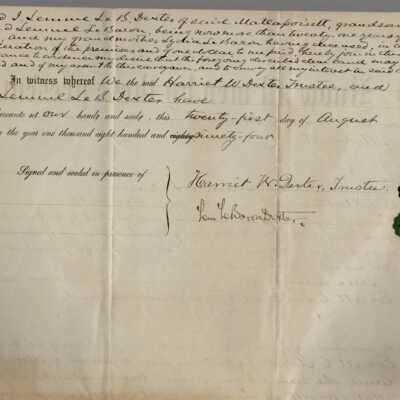 I Lemuel Le B. Dexter of said Mattapoisett, grandson
Lemuel Le Baron, being now more than twenty-one years
and my grandmother, Lydia Le Baron having deceased, in
of the premises and of one dollar to me paid, hereby join in
my desire that the foregoing described land may
and of my assent to this conveyance, and to convey all my interest in said
In witness whereof We the said Harriet W. Dexter, Trustee, and
Lemuel Le B. Dexter have
our hands and seals, this twenty-first day of August
the year one thousand eight hundred and eighty ninety-four
Signed and sealed in presence of
Harriet W. Dexter, Trustee.
Lem LeBaron Dexter.